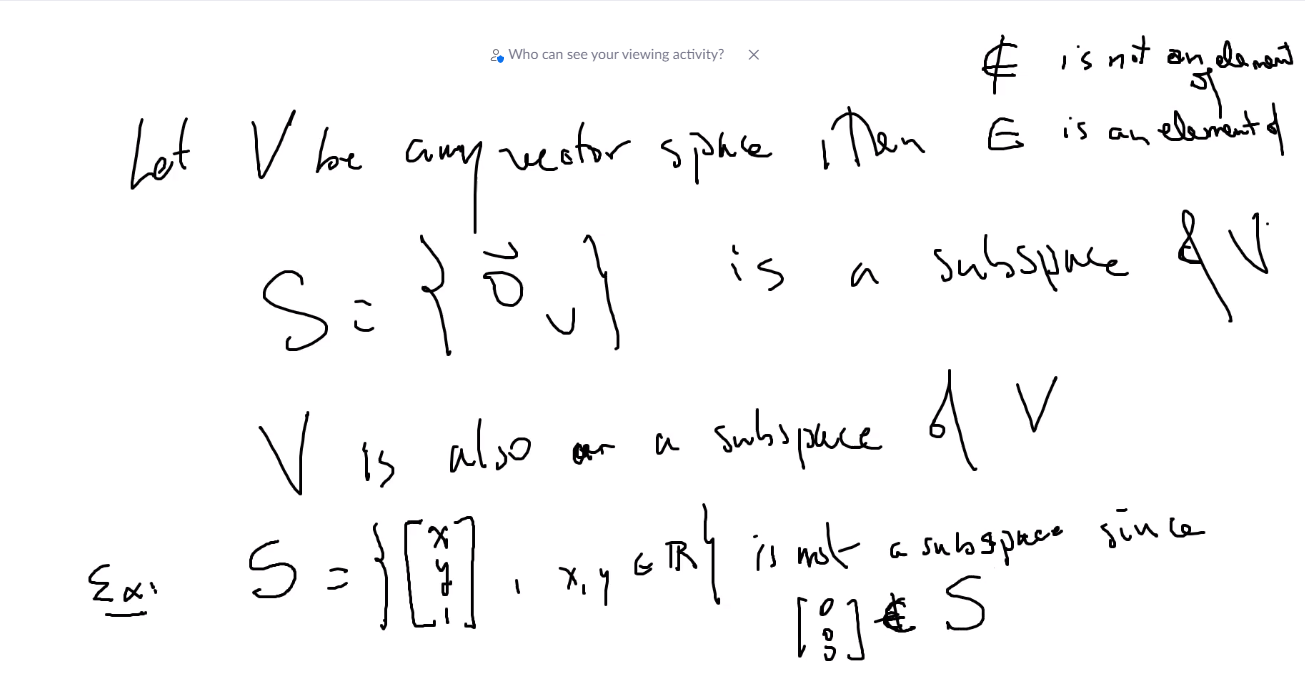 Who can see your viewing activity?
∉ is not an element of
Let V be any vector space then
∈ is an element of
S = { 0⃗ᵥ } is a subspace of V.
V is also a subspace of V
Ex: S = { [x y 1], x, y ∈ ℝ } is not a subspace since
[0 0 0] ∉ S